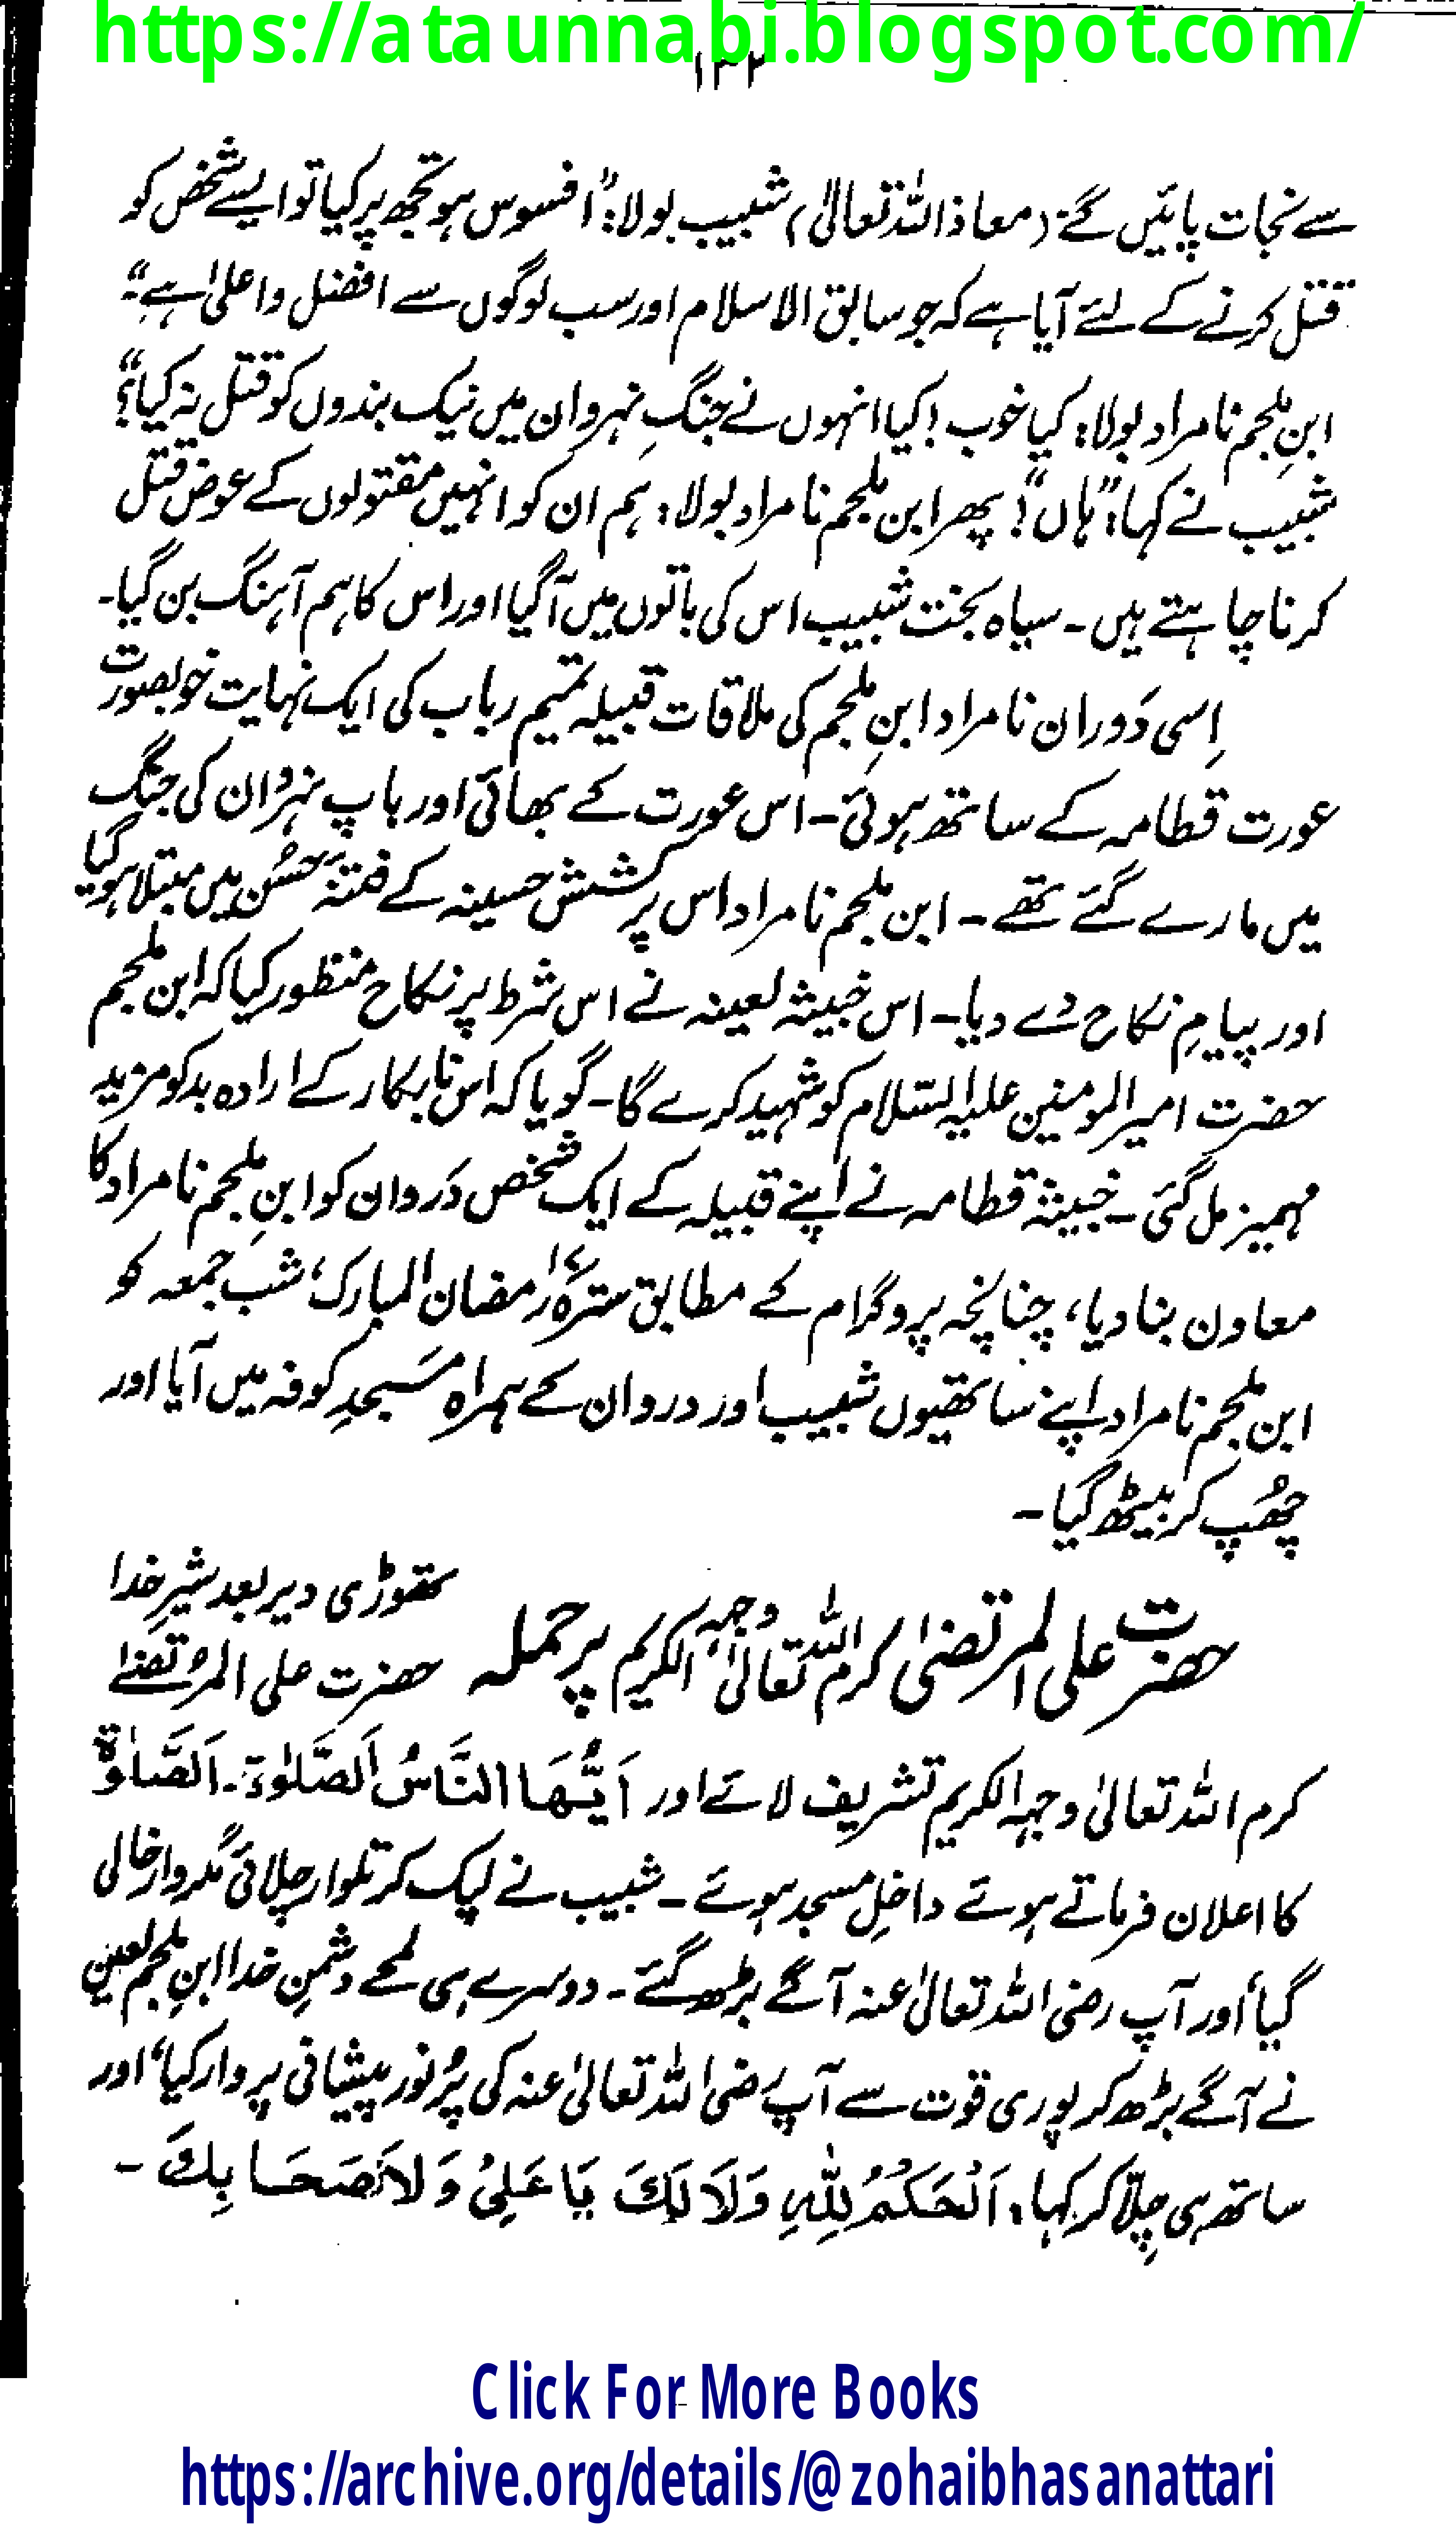 https://ataunnabi.blogspot.com/
۱۳۲
سے نجات پائیں گے" (معاذ اللہ تعالیٰ) شبیب بولا: "افسوس ہو تجھ پر کیا تو ایسے شخص کو
قتل کرنے کے لئے آیا ہے کہ جو سابق الاسلام اور سب لوگوں سے افضل و اعلیٰ ہے"۔
ابنِ ملجم نامراد بولا: کیا خوب! کیا انہوں نے جنگِ نہروان میں نیک بندوں کو قتل نہ کیا"؟
شبیب نے کہا: "ہاں"! پھر ابن ملجم نامراد بولا: ہم ان کو انہیں مقتولوں کے عوض قتل
کرنا چاہتے ہیں۔ سیاہ بخت شبیب اس کی باتوں میں آگیا اور اس کا ہم آہنگ بن گیا۔
اِسی دَوران نامراد ابنِ ملجم کی ملاقات قبیلہ تمیم رباب کی ایک نہایت خوبصورت
عورت قطامہ کے ساتھ ہوئی۔ اس عورت کے بھائی اور باپ نہروان کی جنگ
میں مارے گئے تھے۔ ابن ملجم نامراد اس پر کشش حسینہ کے فتنۂ حُسن میں مبتلا ہوگیا
اور پیامِ نکاح دے دیا۔ اس خبیثہ لعینہ نے اس شرط پر نکاح منظور کیا کہ ابن ملجم
حضرت امیر المومنین علیہ السّلام کو شہید کرے گا۔ گویا کہ اس نابکار کے ارادہ بد کو مزید
مہمیز مل گئی۔ خبیثہ قطامہ نے اپنے قبیلہ کے ایک شخص دَروان کو ابنِ ملجم نامراد کا
معاون بنا دیا، چنانچہ پروگرام کے مطابق سترہ ۱۷ رمضان المبارک، شب جمعہ کو
ابن ملجم نامراد اپنے ساتھیوں شبیب اور دروان کے ہمراہ مَسجدِ کوفہ میں آیا اور
چھُپ کر بیٹھ گیا۔
حضرت علی المرتضیٰ کرم اللہ تعالیٰ وجہہ الکریم پر حملہ
تھوڑی دیر بعد شیرِ خدا
حضرت علی المرتضےٰ
کرم اللہ تعالیٰ وجہہ الکریم تشریف لائے اور اَیُّھَا النَّاسُ اَلصَّلوٰۃ۔ اَلصَّلوٰۃ
کا اعلان فرماتے ہوئے داخلِ مسجد ہوئے۔ شبیب نے لپک کر تلوار چلائی مگر وار خالی
گیا، اور آپ رضی اللہ تعالیٰ عنہ آگے بڑھ گئے۔ دوسرے ہی لمحے دشمنِ خدا ابنِ ملجم لعین
نے آگے بڑھ کر پوری قوت سے آپ رضی اللہ تعالیٰ عنہ کی پُر نور پیشانی پر وار کیا، اور
ساتھ ہی چِلّا کر کہا: اَلْحَکَمُ لِلّٰہِ وَلَا لَکَ یَا عَلِیُ وَلَا صَحَابِکَ۔
Click For More Books
https://archive.org/details/@zohaibhasanattari